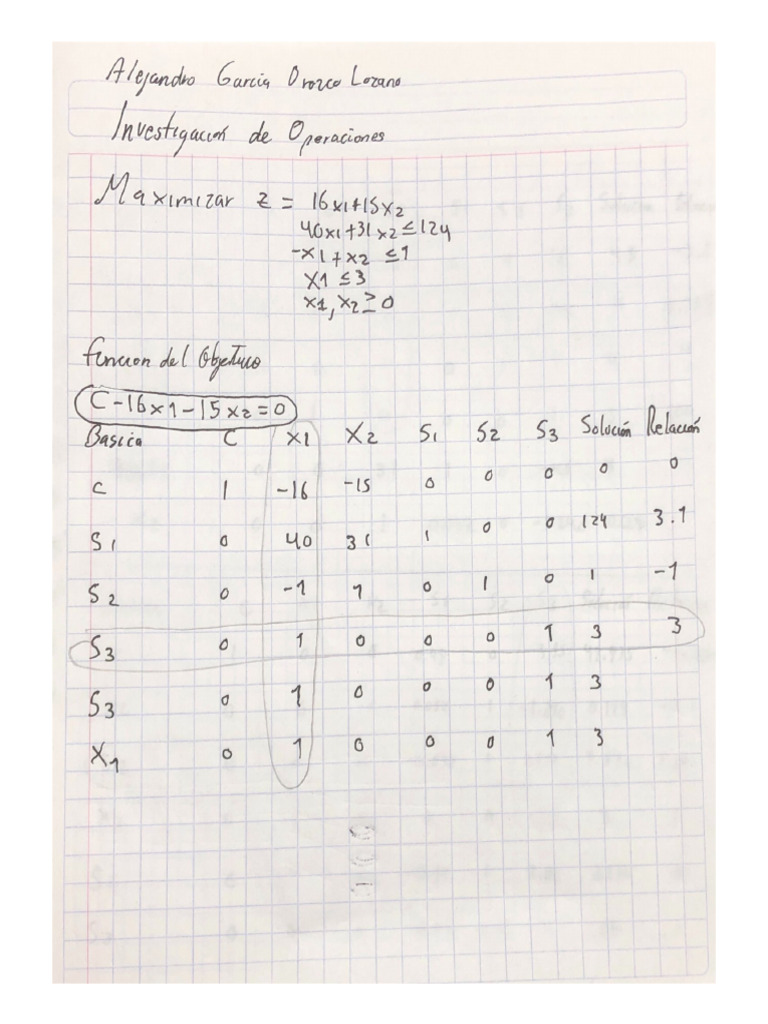 Alejandro Garcia Orozco Lozano
Investigación de Operaciones
Maximizar z = 16x1+15x2
40x1+31x2≤124
-x1+x2 ≤1
x1 ≤3
x1, x2 ≥ 0
funcion del Objetivo
C-16x1-15x2=0
Basica C X1 X2 S1 S2 S3 Solución Relación
C 1 -16 -15 0 0 0 0 0
S1 0 40 31 1 0 0 124 3.1
S2 0 -1 1 0 1 0 1 -1
S3 0 1 0 0 0 1 3 3
S3 0 1 0 0 0 1 3
X1 0 1 0 0 0 1 3